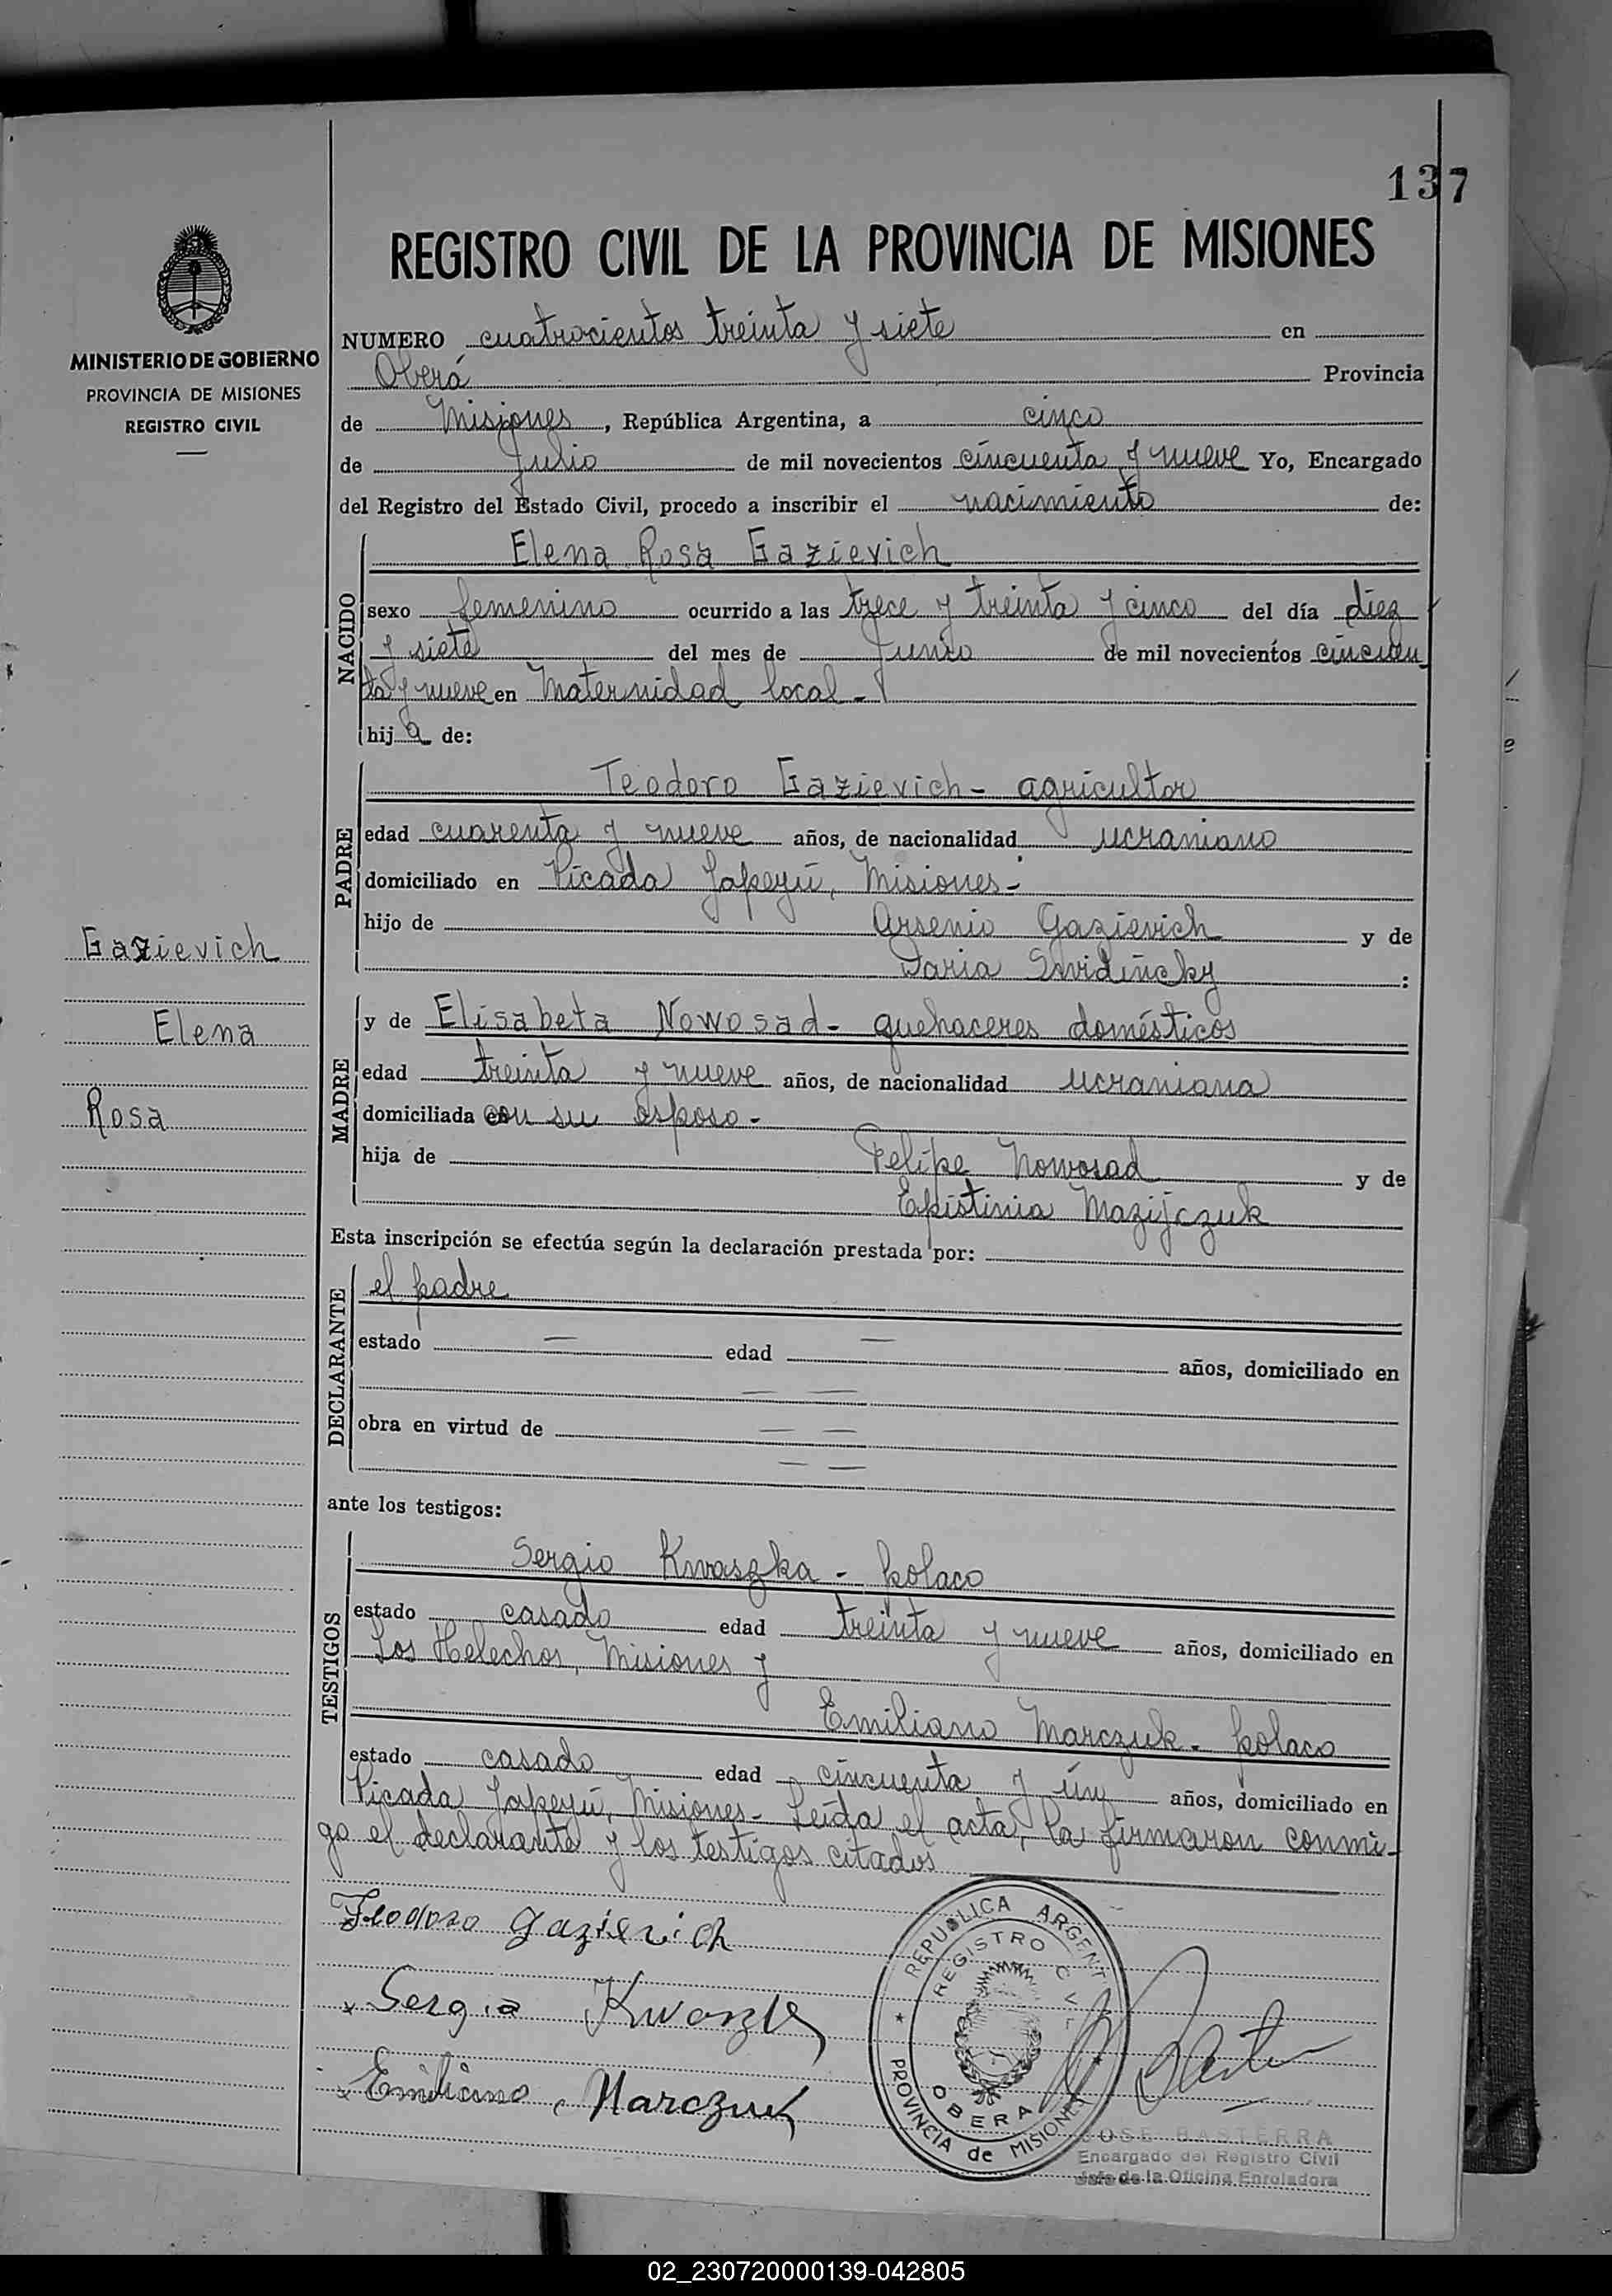 137
REGISTRO CIVIL DE LA PROVINCIA DE MISIONES
MINISTERIO DE GOBIERNO
PROVINCIA DE MISIONES
REGISTRO CIVIL
NUMERO cuatrocientos treinta y siete en
Oberá Provincia
de Misiones, República Argentina, a cinco
de Julio de mil novecientos cincuenta y nueve Yo, Encargado
del Registro del Estado Civil, procedo a inscribir el nacimiento de:
NACIDO
Elena Rosa Gazievich
sexo femenino ocurrido a las trece y treinta y cinco del día diez
y siete del mes de Junio de mil novecientos cincuen
ta y nueve en Maternidad local.-
hija de:
PADRE
Teodoro Gazievich - agricultor
edad cuarenta y nueve años, de nacionalidad ucraniano
domiciliado en Picada Yapeyú, Misiones-
hijo de Arsenio Gazievich y de
Daria :
Gazievich
Elena
Rosa
MADRE
y de Elisabeta Nowosad - quehaceres domésticos
edad treinta y nueve años, de nacionalidad ucraniana
domiciliada con su esposo-
hija de Felipe Nowosad y de
Epistinia Mazijczuk
Esta inscripción se efectúa según la declaración prestada por:
DECLARANTE
el padre
estado — edad — años, domiciliado en
— —
obra en virtud de — —
— —
ante los testigos:
TESTIGOS
Sergio Kwaszka - polaco
estado casado edad treinta y nueve años, domiciliado en
Los Helechos, Misiones y
Emiliano Marczuk - polaco
estado casado edad cincuenta y ún años, domiciliado en
Picada Yapeyú, Misiones- Leída el acta, la firmaron conmi-
go el declarante y los testigos citados
Teodoro Gazievich
Sergio
Emiliano Marczuk
REPUBLICA ARGENT
REGISTRO CIVIL
OBERA
PROVINCIA de MISIONES
JOSE BASTERRA
Encargado del Registro Civil
Jefe de la Oficina Enroladora
02_230720000139-042805